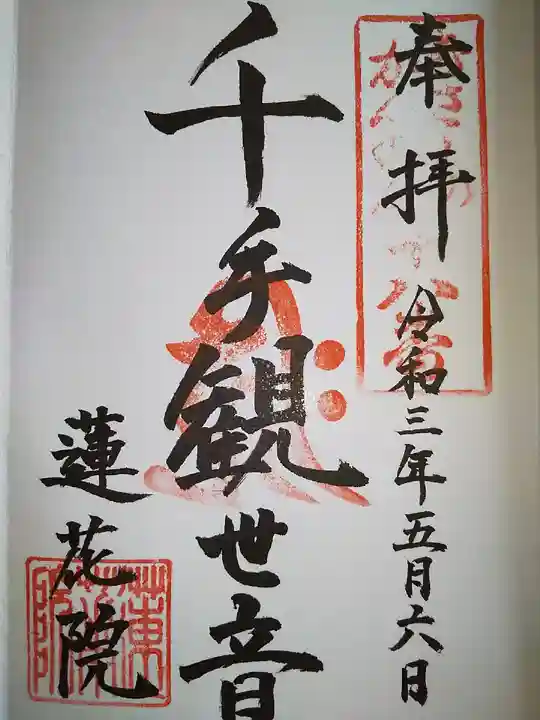 奉拝
令和三年五月六日
千手観世音
蓮花院